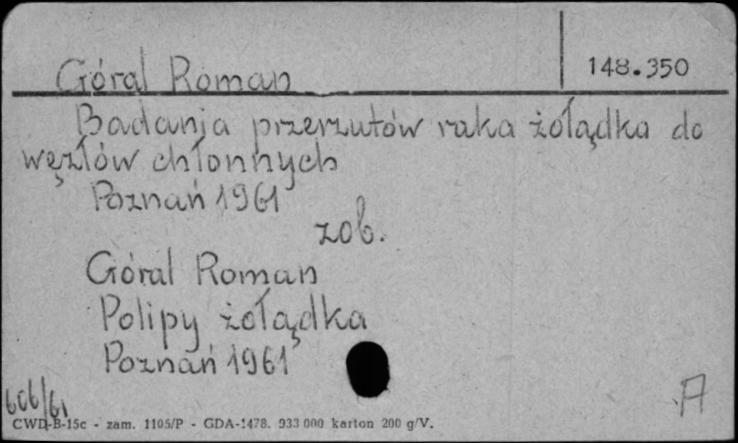 Góral Roman 148.350
Badania przerzutów raka żołądka do
węzłów chłonnych
Poznań 1961
zob.
Góral Roman
Polipy żołądka
Poznań 1961
606/61
A
CWD-B-15c - zam. 1105/P - GDA-1478. 933 000 karton 200 g/V.